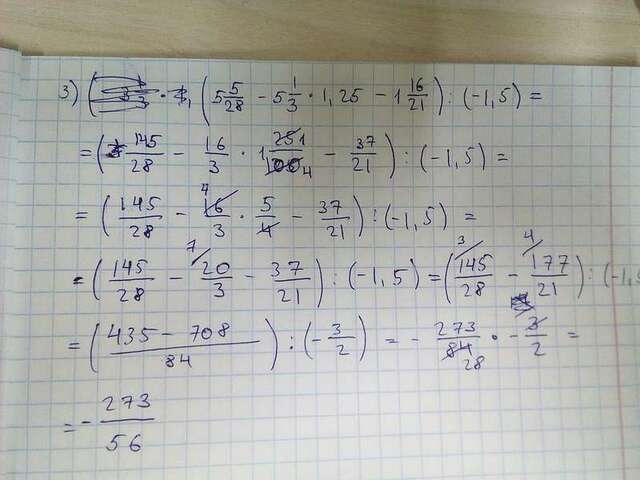 3) (5 5/28 - 5 1/3 · 1,25 - 1 16/21) : (-1,5) =
= (145/28 - 16/3 · 1 25/100 - 37/21) : (-1,5) =
= (145/28 - 16/3 · 5/4 - 37/21) : (-1,5) =
= (145/28 - 20/3 - 37/21) : (-1,5) = (145/28 - 177/21) : (-1,5
= (435 - 708 / 84) : (-3/2) = - 273/84 · - 3/2 =
= - 273/56